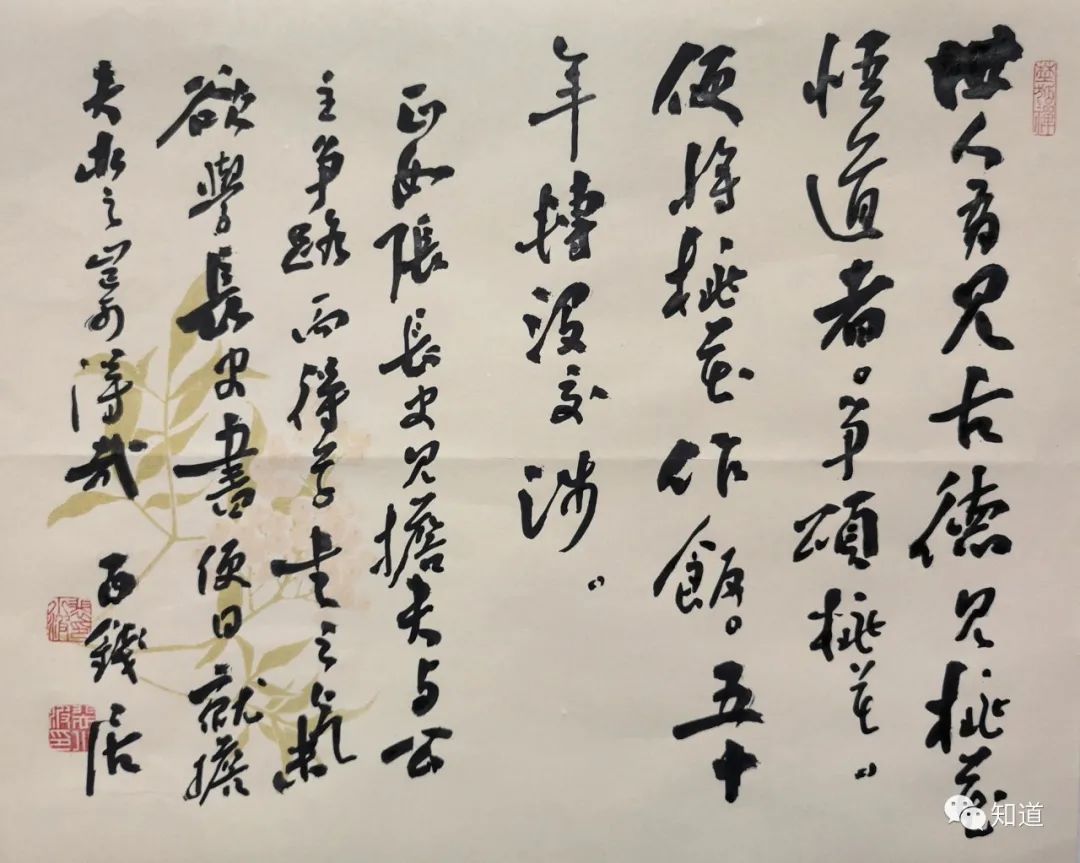 世人有見古德見桃花
悟道者。争頌桃花。
便將桃花作飯。五十
年轉沒交涉。
正如張長史見擔夫与公
主争路而得草書之氣
欲學長史書便日就擔
夫求之豈可得哉 西錢居
知道